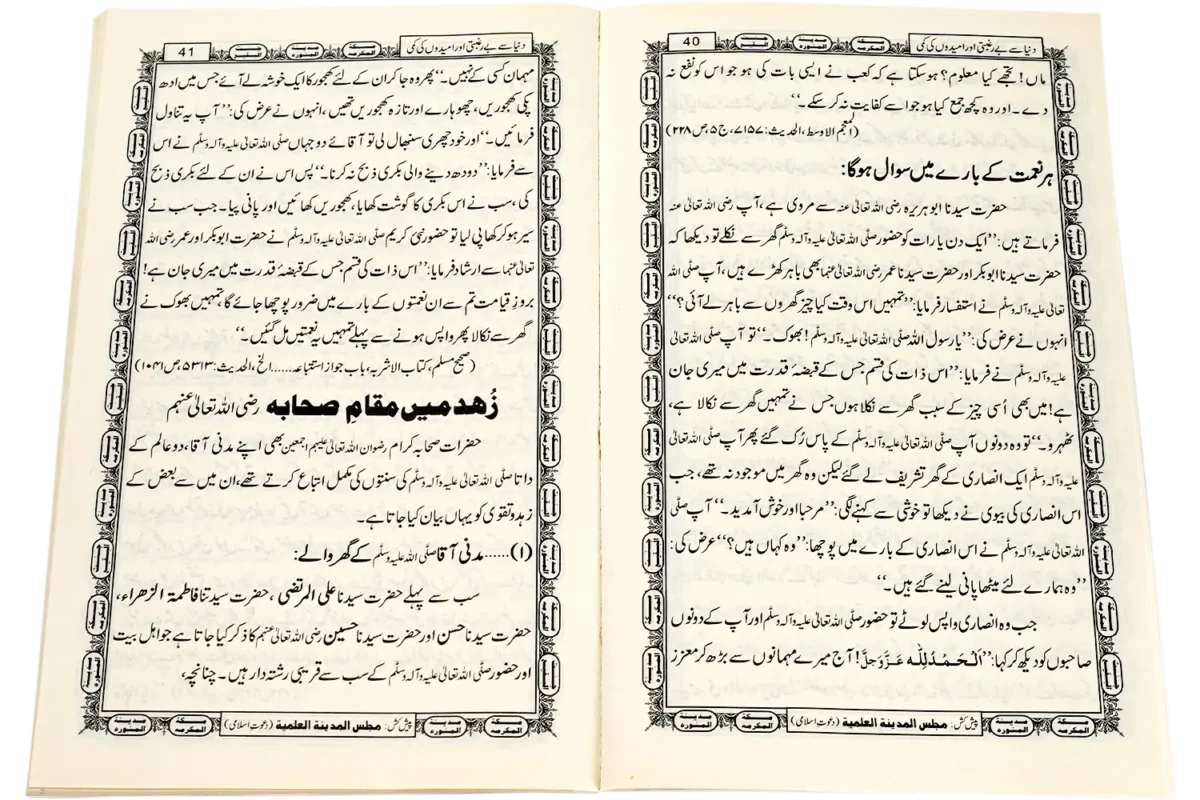 دنیا سے بے رغبتی اور امیدوں کی کمی
40
ماں! تجھے کیا معلوم؟ ہو سکتا ہے کہ کعب نے ایسی بات کی ہو جو اس کو نفع نہ
دے۔ اور وہ کچھ جمع کیا ہو جو اسے کفایت نہ کر سکے۔‘‘
(المعجم الاوسط، الحدیث: ۷۱۵۷، ج۵، ص ۲۲۸)
ہر نعمت کے بارے میں سوال ہوگا:
حضرت سیدنا ابو ہریرہ رضی اللہ تعالیٰ عنہ سے مروی ہے، آپ رضی اللہ تعالیٰ عنہ
فرماتے ہیں: ’’ایک دن یا رات کو حضور صلّی اللہ تعالیٰ علیہ وآلہ وسلّم گھر سے نکلے تو دیکھا کہ
حضرت سیدنا ابوبکر اور حضرت سیدنا عمر رضی اللہ تعالیٰ عنہما بھی باہر کھڑے ہیں، آپ صلّی اللہ
تعالیٰ علیہ وآلہ وسلّم نے استفسار فرمایا: ’’تمہیں اس وقت کیا چیز گھروں سے باہر لے آئی؟‘‘
انہوں نے عرض کی: ’’یا رسول اللہ صلّی اللہ تعالیٰ علیہ وآلہ وسلّم! بھوک۔‘‘ تو آپ صلّی اللہ تعالیٰ
علیہ وآلہ وسلّم نے فرمایا: ’’اس ذات کی قسم جس کے قبضۂ قدرت میں میری جان
ہے! میں بھی اُسی چیز کے سبب گھر سے نکلا ہوں جس نے تمہیں گھر سے نکالا ہے،
ٹھہرو۔‘‘ تو وہ دونوں آپ صلّی اللہ تعالیٰ علیہ وآلہ وسلّم کے پاس رُک گئے پھر آپ صلّی اللہ تعالیٰ
علیہ وآلہ وسلّم ایک انصاری کے گھر تشریف لے گئے لیکن وہ گھر میں موجود نہ تھے، جب
اس انصاری کی بیوی نے دیکھا تو خوشی سے کہنے لگی: ’’مرحبا اور خوش آمدید۔‘‘ آپ صلّی
اللہ تعالیٰ علیہ وآلہ وسلّم نے اس انصاری کے بارے میں پوچھا: ’’وہ کہاں ہیں؟‘‘ عرض کی:
’’وہ ہمارے لئے میٹھا پانی لینے گئے ہیں۔‘‘
جب وہ انصاری واپس لوٹے تو حضور صلّی اللہ تعالیٰ علیہ وآلہ وسلّم اور آپ کے دونوں
صاحبوں کو دیکھ کر کہا: ’’اَلْحَمْدُلِلّٰہ عَزَّوَجَلَّ! آج میرے مہمانوں سے بڑھ کر معزز
پیش کش: مجلس المدینۃ العلمیۃ (دعوتِ اسلامی)
دنیا سے بے رغبتی اور امیدوں کی کمی
41
مہمان کسی کے نہیں۔‘‘ پھر وہ جا کر ان کے لئے کھجور کا ایک خوشہ لے آئے جس میں ادھ
پکی کھجوریں، چھوہارے اور تازہ کھجوریں تھیں، انہوں نے عرض کی: ’’آپ یہ تناول
فرمائیں۔‘‘ اور خود چھری سنبھال لی تو آقائے دو جہاں صلّی اللہ تعالیٰ علیہ وآلہ وسلّم نے اس
سے فرمایا: ’’دودھ دینے والی بکری ذبح نہ کرنا۔‘‘ پس اس نے ان کے لئے بکری ذبح
کی، سب نے اس بکری کا گوشت کھایا، کھجوریں کھائیں اور پانی پیا۔ جب سب نے
سیر ہو کر کھا پی لیا تو حضور نبیٔ کریم صلّی اللہ تعالیٰ علیہ وآلہ وسلّم نے حضرت ابوبکر اور عمر رضی اللہ
تعالیٰ عنہما سے ارشاد فرمایا: ’’اس ذات کی قسم جس کے قبضۂ قدرت میں میری جان ہے!
بروزِ قیامت تم سے ان نعمتوں کے بارے میں ضرور پوچھا جائے گا، تمہیں بھوک نے
گھر سے نکالا پھر واپس ہونے سے پہلے تمہیں یہ نعمتیں مل گئیں۔‘‘
(صحیح مسلم، کتاب الاشربہ، باب جواز استتباعہ......الخ، الحدیث: ۵۳۱۳، ص ۱۰۴۱)
زُھد میں مقامِ صحابہ رضی اللہ تعالیٰ عنہم
حضرات صحابہ کرام رضوان اللہ تعالیٰ علیہم اجمعین بھی اپنے مدنی آقا، دو عالم کے
داتا صلّی اللہ تعالیٰ علیہ وآلہ وسلّم کی سنتوں کی مکمل اتباع کرتے تھے، ان میں سے بعض کے
زہد و تقویٰ کو یہاں بیان کیا جاتا ہے۔
(۱)......مدنی آقا صلی اللہ علیہ وسلم کے گھر والے:
سب سے پہلے حضرت سیدنا علی المرتضیٰ، حضرت سیدتنا فاطمۃ الزھراء،
حضرت سیدنا حسن اور حضرت سیدنا حسین رضی اللہ تعالیٰ عنہم کا ذکر کیا جاتا ہے جو اہل بیت
اور حضور صلّی اللہ تعالیٰ علیہ وآلہ وسلّم کے سب سے قریبی رشتہ دار ہیں۔ چنانچہ،
پیش کش: مجلس المدینۃ العلمیۃ (دعوتِ اسلامی)